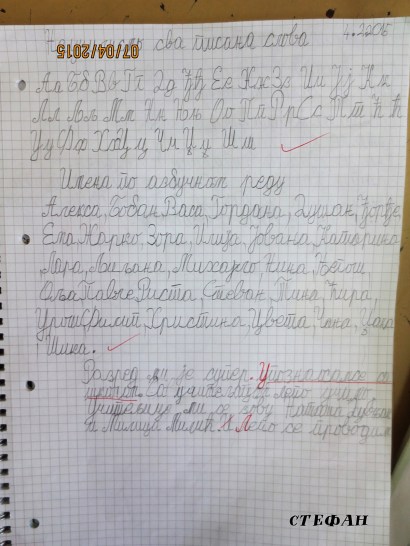 Научили смо сва писана слова 4.2.2015
07/04/2015
Аа Бб Вв Гг Дд Ђђ Ее Жж Зз Ии Јј Кк
Лл Љљ Мм Нн Њњ Оо Пп Рр Сс Тт Ћћ
Уу Фф Хх Цц Чч Џџ Шш
Имена по азбучном реду
Алекса, Бобан, Васа, Гордана, Душан, Ђорђе,
Ема, Жарко, Зора, Илија, Јована, Катарина,
Лара, Љиљана, Михајло, Нина, Његош,
Оља, Павле, Риста, Стеван, Тина, Ћира,
Урош, Филип, Христина, Цвета, Чана, Џага
Шика.
Разред ми је супер. Упознала ме са
ми се зову Наташа
и Милица Милић. И Лепо се проводим
СТЕФАН